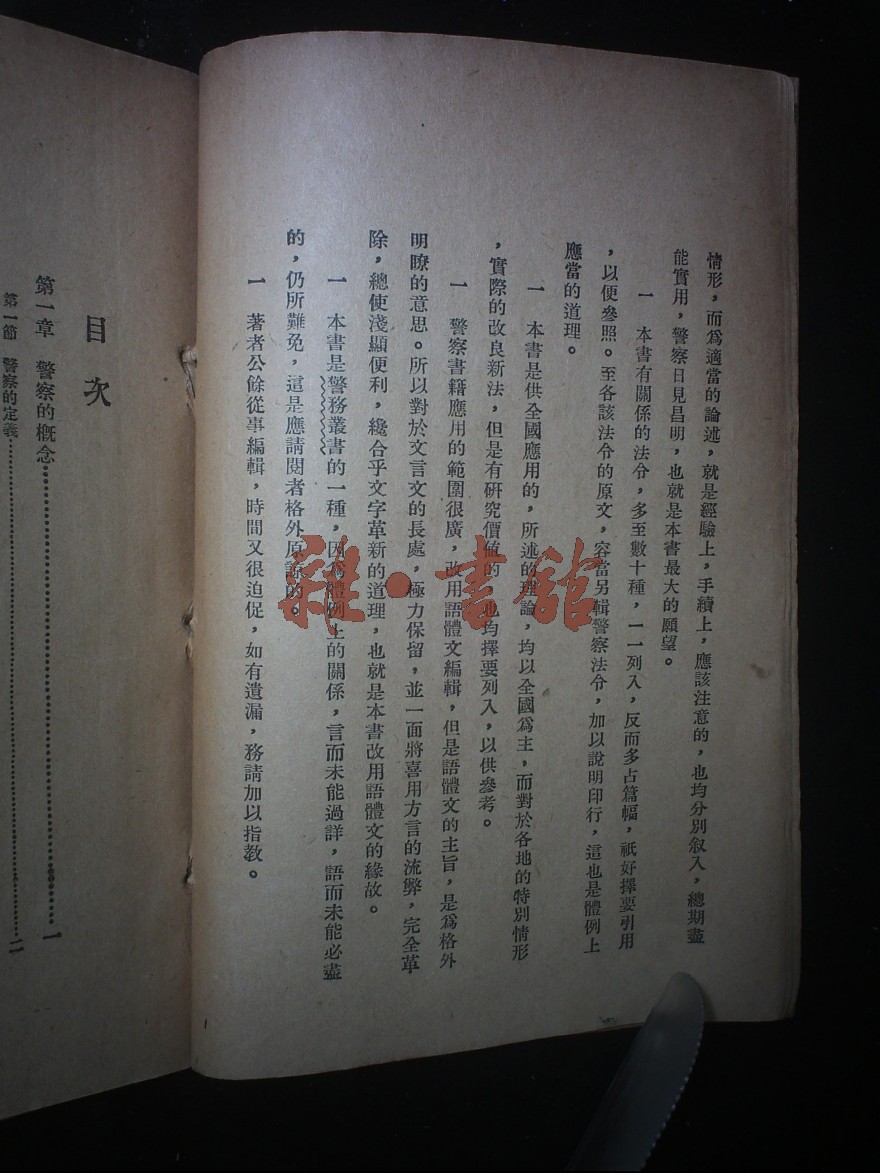 情形，而爲適當的論述，就是經驗上，手續上，應該注意的，也均分別叙入，總期盡
能實用，警察日見昌明，也就是本書最大的願望。
一　本書有關係的法令，多至數十種，一一列入，反而多占篇幅，祇好擇要引用
，以便參照。至各該法令的原文，容當另輯警察法令，加以說明印行，這也是體例上
應當的道理。
一　本書是供全國應用的，所述的理論，均以全國爲主，而對於各地的特別情形
，實際的改良新法，但是有研究價值的，也均擇要列入，以供參考。
一　警察書籍應用的範圍很廣，改用語體文編輯，但是語體文的主旨，是爲格外
明瞭的意思。所以對於文言文的長處，極力保留，並一面將喜用方言的流弊，完全革
除，總使淺顯便利，纔合乎文字革新的道理，也就是本書改用語體文的緣故。
一　本書是警務叢書的一種，因爲體例上的關係，言而未能過詳，語而未能必盡
的，仍所難免，這是應請閱者格外原諒的。
一　著者公餘從事編輯，時間又很迫促，如有遺漏，務請加以指教。
目次
第一章　警察的概念……一
第一節　警察的定義……二
雜·書館